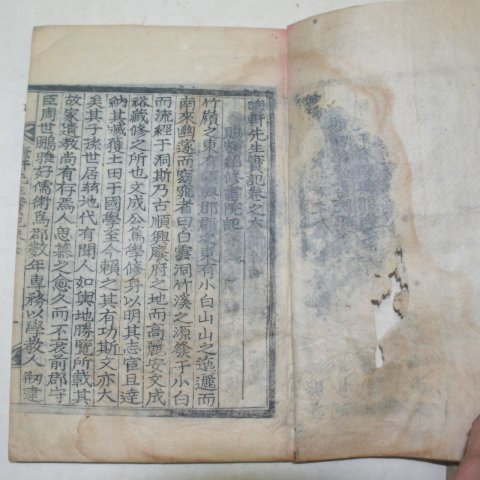 晦軒先生實記卷之六
明宗紹修書院記
竹嶺之東
郡郡之東有小白山山之迤邐而
南來幽邃而窈窕者曰白雲洞竹溪之源發于小白
而流經于洞斯乃古順興廢府之地而高麗安文成
裕藏修之所也文成公篤學修身以明其志宦且達
納其臧獲土田于國學至今賴之其有功斯文亦大
矣其子孫世居玆地代有聞人如輿地勝覽所載其
故家遺敎尚有存焉人思慕之愈久而不衰前郡守
臣周世鵬雅好儒術爲郡數年專務以學敎人刱建